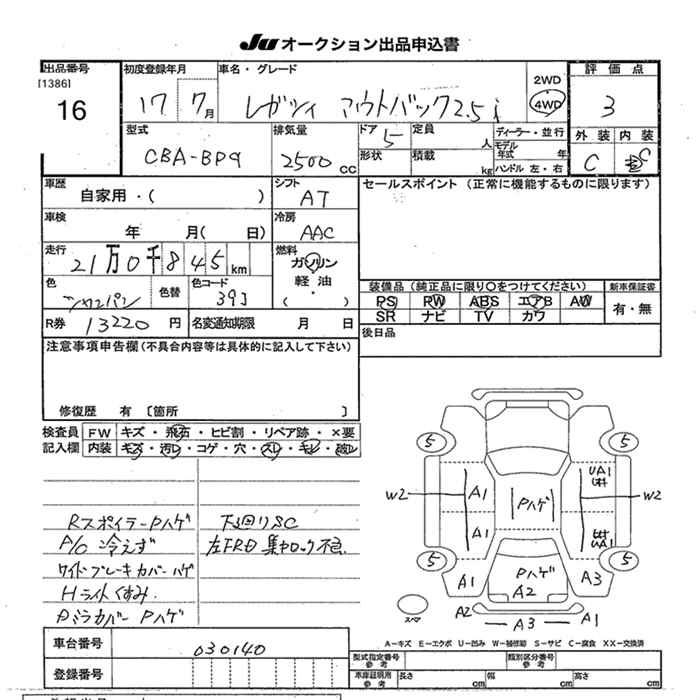 JU オークション出品申込書
出品番号 初度登録年月 車名・グレード 評価点
[1386] 16 17 7月 レガシィ アウトバック2.5i 2WD 4WD 3
型式 排気量 ドア 定員 人 ディーラー・並行 外装 内装
CBA-BP9 2500 CC 5 形状 積載 kg モデル年式 年 ハンドル 左・右 C C
車歴 自家用・( ) シフト AT セールスポイント (正常に機能するものに限ります)
車検 年 月( 日) 冷房 AAC
走行 21万0千845km 燃料 ガソリン 軽油 ( )
色 シャンパン 色替 色コード 39J 装備品 (純正品に限り○をつけてください) 新車保証書
PS PW ABS エアB AW 有・無
SR ナビ TV カワ
R券 13220円 名変通知期限 月 日 後日品
注意事項申告欄(不具合内容等は具体的に記入して下さい)
修復歴 有 〔箇所 〕
検査員 FW キズ・飛石・ヒビ割・リペア跡・×要
記入欄 内装 キズ・汚レ・コゲ・穴・スレ・キレ・破レ
Rスポイラー Pハゲ 下廻りSC
A/C 冷えず
ワイドブレーキカバーハゲ
Hライトくすみ
Pミラカバー Pハゲ
5 5
W2 A1 Pハゲ UA1 W2
A1 UA1
5 5
A1 Pハゲ A2 A3
スペア A2 A3 A1
A-キズ E-エクボ U-凹み W-補修跡 S-サビ C-腐食 XX-交換済
車台番号 030140
型式指定番号 参考 類別区分番号 参考
登録番号 車庫証明用 参考 長さ cm 幅 cm 高さ cm